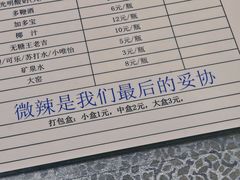 多糖酒 6元/瓶
加多宝 12元/瓶
椰汁 5元/瓶
无糖王老吉 5元/瓶
/可乐/苏打水/小唯怡
矿泉水 8元/瓶
大窑
微辣是我们最后的妥协
打包盒：小盒1元，中盒2元，大盒3元。